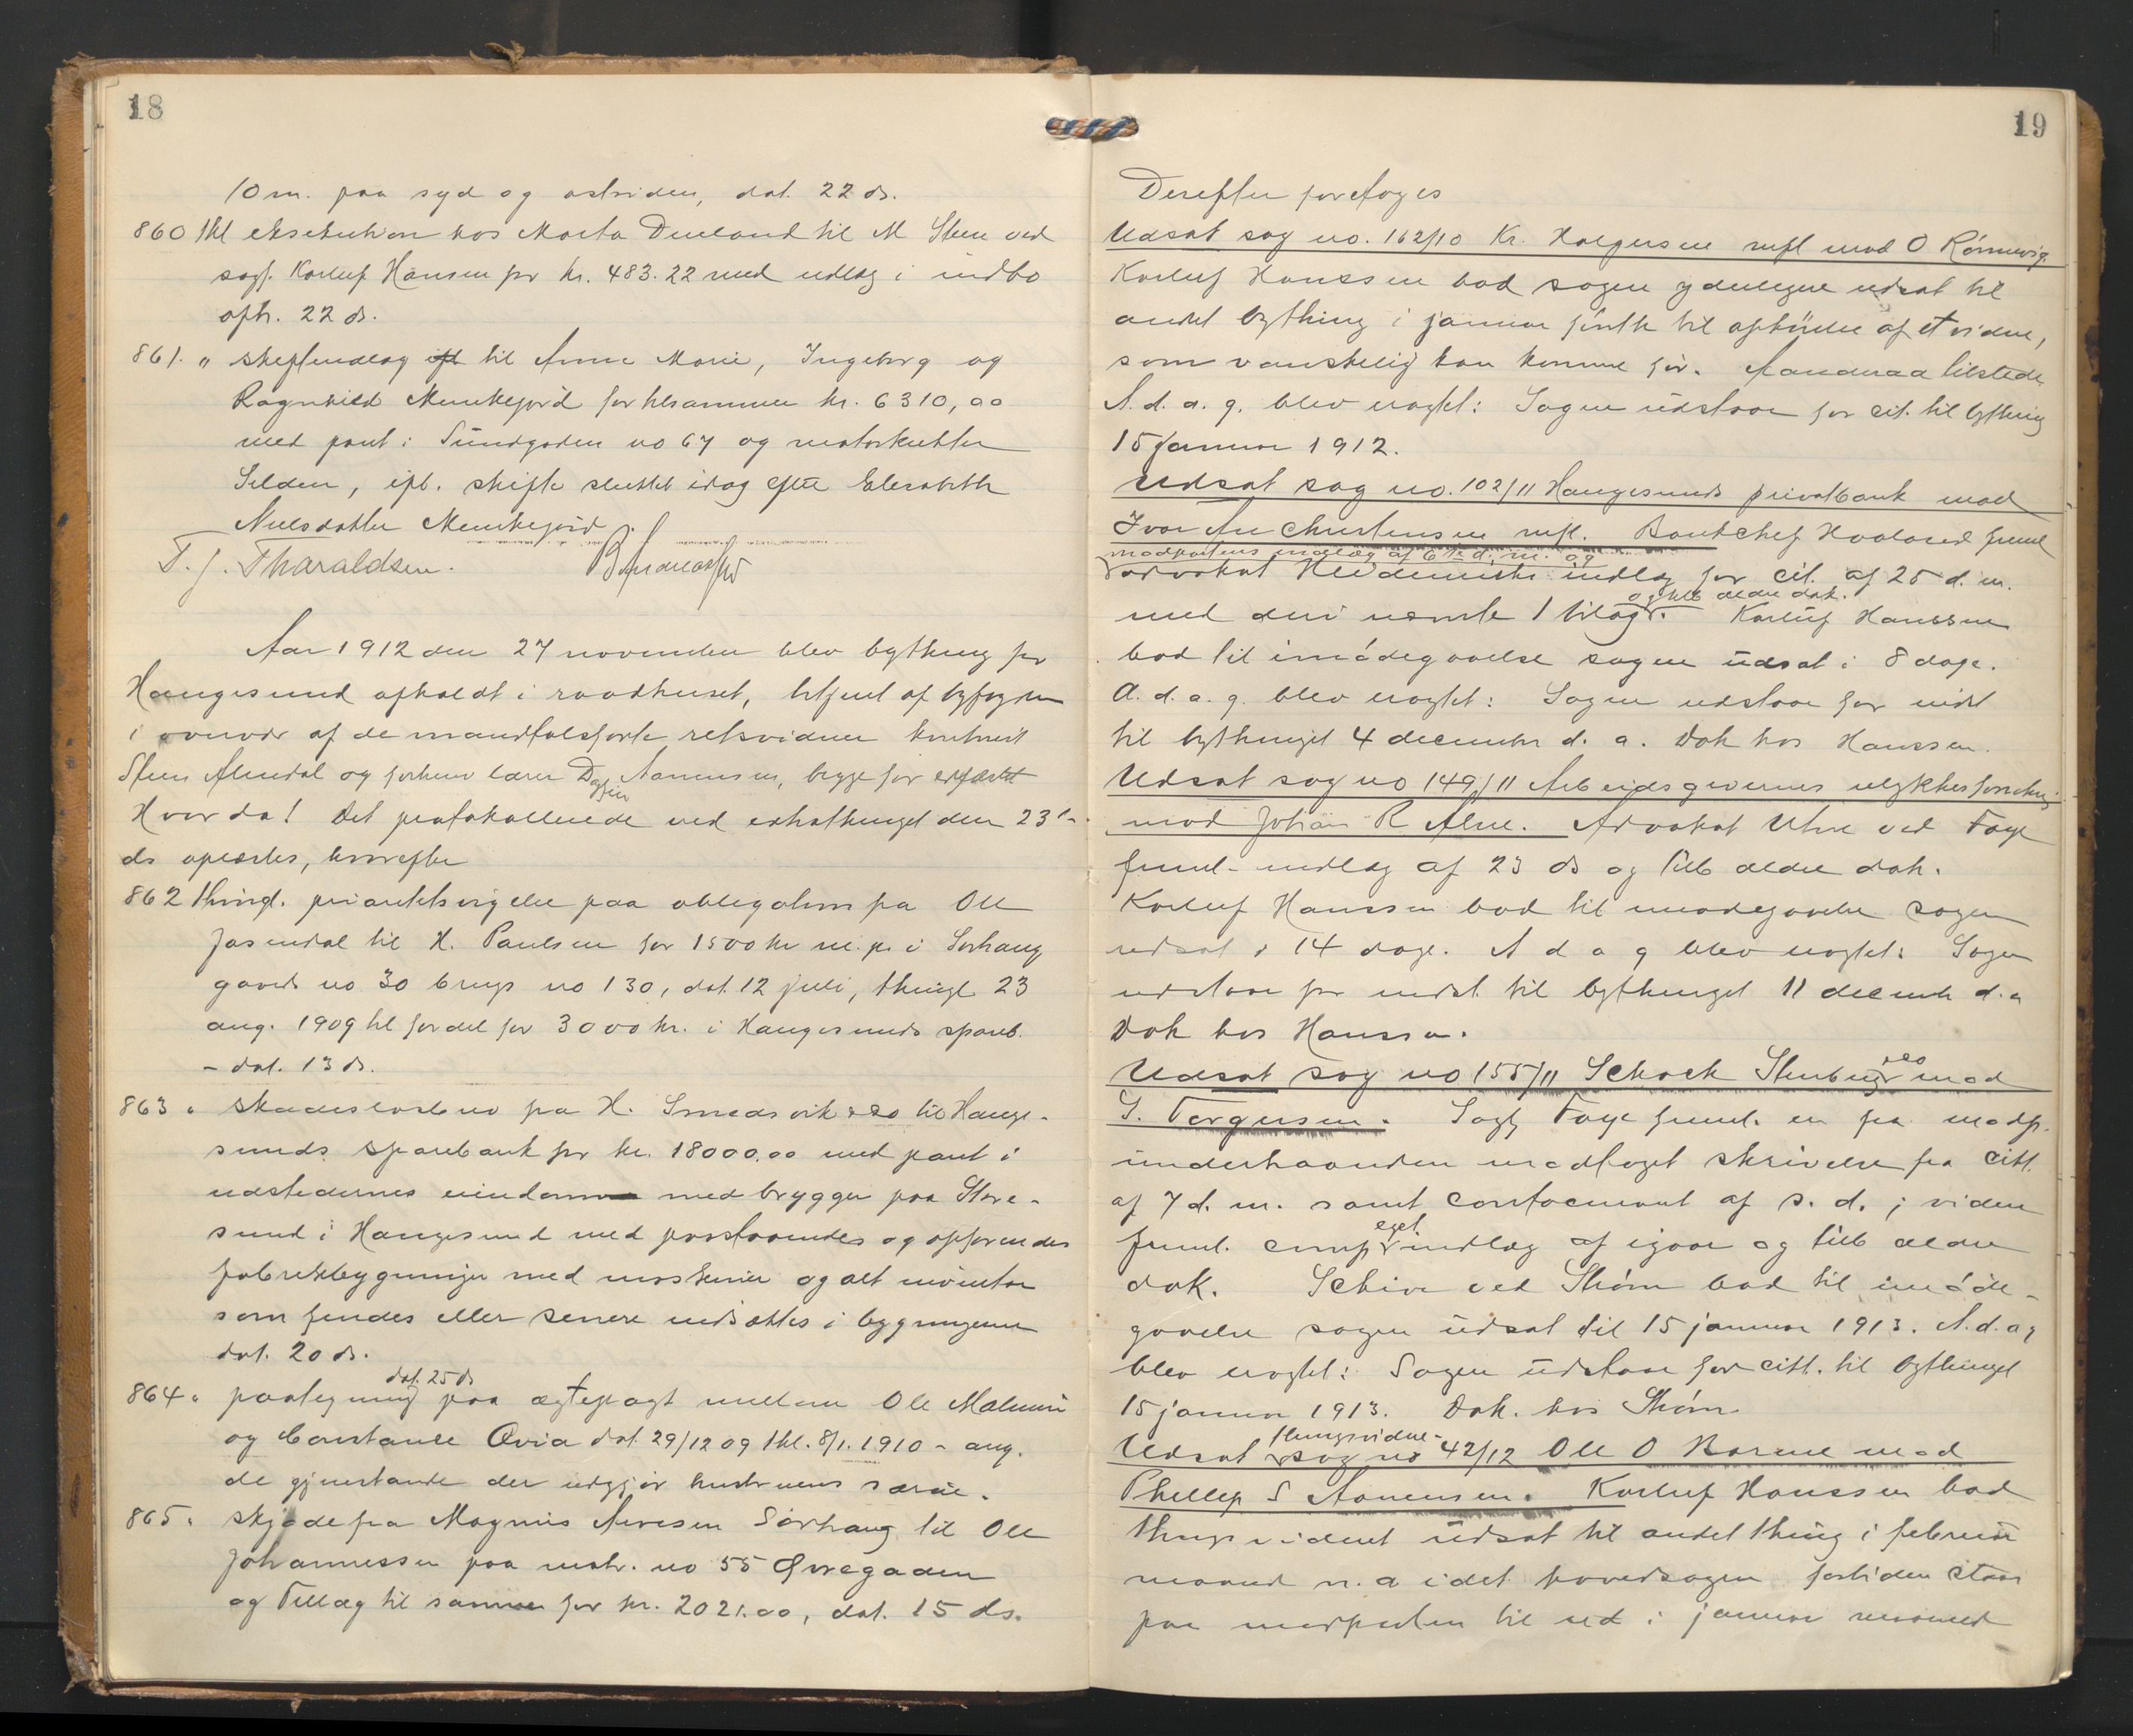 18
10 m. paa syd og østsiden, dat. 22 ds.
860 thl eksekution hos Marta Dueland til M Steen ved
sagf. Karluf Hansen for kr. 483.22 med udlæg i indbo
afh. 22 ds.
861. " skifteudlæg til Anne Marie, Ingeborg og
Ragnhild Munkejord for tilsammen kr. 6310,00
med pant i Sundgaden no 67 og motorkutter
Silden, ifl. skifte sluttet idag efter Elisabeth
Nielsdatter Munkejord.
T. J. Tharaldsen.
Aar 1912 den 27 november blev bything for
Haugesund afholdt i raadhuset, betjent af byfogden
i overvær af de mandtalsførte retsvidner
Steen Amdal og forhenv lærer Dagfin Aanensen, begge før edfæstet
Hvorda! Det protokollerede ved extrathinget den 23de
ds oplæstes, hvorefter
862 thingl. prioritetsvigelse paa obligation fra Ole
Jasendal til H. Paulsen for 1500 kr m. p. i Sørhaug
gaards no 30 brugs no 130, dat. 12 juli, thingl 23
aug. 1909 til fordel for 3000 kr. i Haugesunds spareb.
- dat. 13 ds.
863 " skadesløsbrev fra H. Smedsvik & co til Hauge-
sunds sparebank for kr. 18000.00 med pant i
udstedernes eiendom med brygger paa Store-
sund i Haugesund med paastaaendes og opførendes
fabrikbygninger med maskiner og alt inventar
som findes eller senere indsættes i bygningerne
dat. 20 ds.
dat. 25 ds
864 " paategning paa ægtepagt mellem Ole Malmin
og Constance Qvia dat. 29/12 09 thl. 8/1. 1910 - ang.
de gjenstande der udgjør hustruens særeie.
865 " skjøde fra Magnus Arnesen Sørhaug til Ole
Johannessen paa matr. no 55 Øvregaden
og Tillæg til samme for kr. 2021.00, dat. 15 ds.
19
Derefter foretoges
Udsat sag no. 162/10 Kr. Holgersen mfl mod O Rønnevig.
Karluf Hanssen bad sagen yderligere udsat til
andet bything i januar førstk til afhørelse af et vidne,
som vanskelig kan komme før. Aanderaa tilstede
A. d. a. g. blev eragtet: Sagen udstaar for cit. til bything
15 januar 1912.
Udsat sag no. 102/11 Haugesunds privatbank mod
Ivar An Christensen mfl. Bankchef Haaland freml
modpartens indlæg af 6te d. m. og
advokat Heidenreichs indlæg for cit. af 25 d. m.
og tilb ældre dok.
med deri nævnte 1 bilag. Karluf Hanssen
bad til imødegaaelse sagen udsat i 8 dage.
A. d. a. g. blev eragtet: Sagen udstaar for indst
til bythinget 4 december d. a. Dok hos Hanssen.
Udsat sag no 149/11 Arbeidsgivernes ulykkesforsikring
mod Johan R Alne. Advokat Utne ved Faye
freml. indlæg af 23 ds og tilb ældre dok.
Karluf Hanssen bad til imødegaaelse sagen
udsat i 14 dage. A d a g blev eragtet: Sagen
udstaar for indst. til bythinget 11 decemb d. a
Dok hos Hanssen.
Udsat sag no 155/11 Schack Stenberg & co mod
S. Torgersen. Sagf Faye freml. en fra modp.
underhaanden modtaget skrivelse fra citt.
af 7 d. m. samt contocurant af s. d., viden
freml. eget indlæg af igaar og tilb ældre
dok. Schive ved Strøm bad til imøde-
gaaelse sagen udsat til 15 januar 1913. A. d. a g
blev eragtet: Sagen udstaar for citt. til bythinget
15 januar 1913. Dok. hos Strøm
Udsat thingsvidne- sag no 42/12 Ole O Barane mod
Phillip S Aanensen. Karluf Hanssen bad
thingsvidnet udsat til andet thing i februar
maaned n. a idet hovedsagen fortiden staar
paa modparten til ud i januar maaned